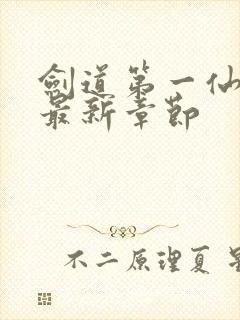 劍道第一仙
最新章節
不二原理夏